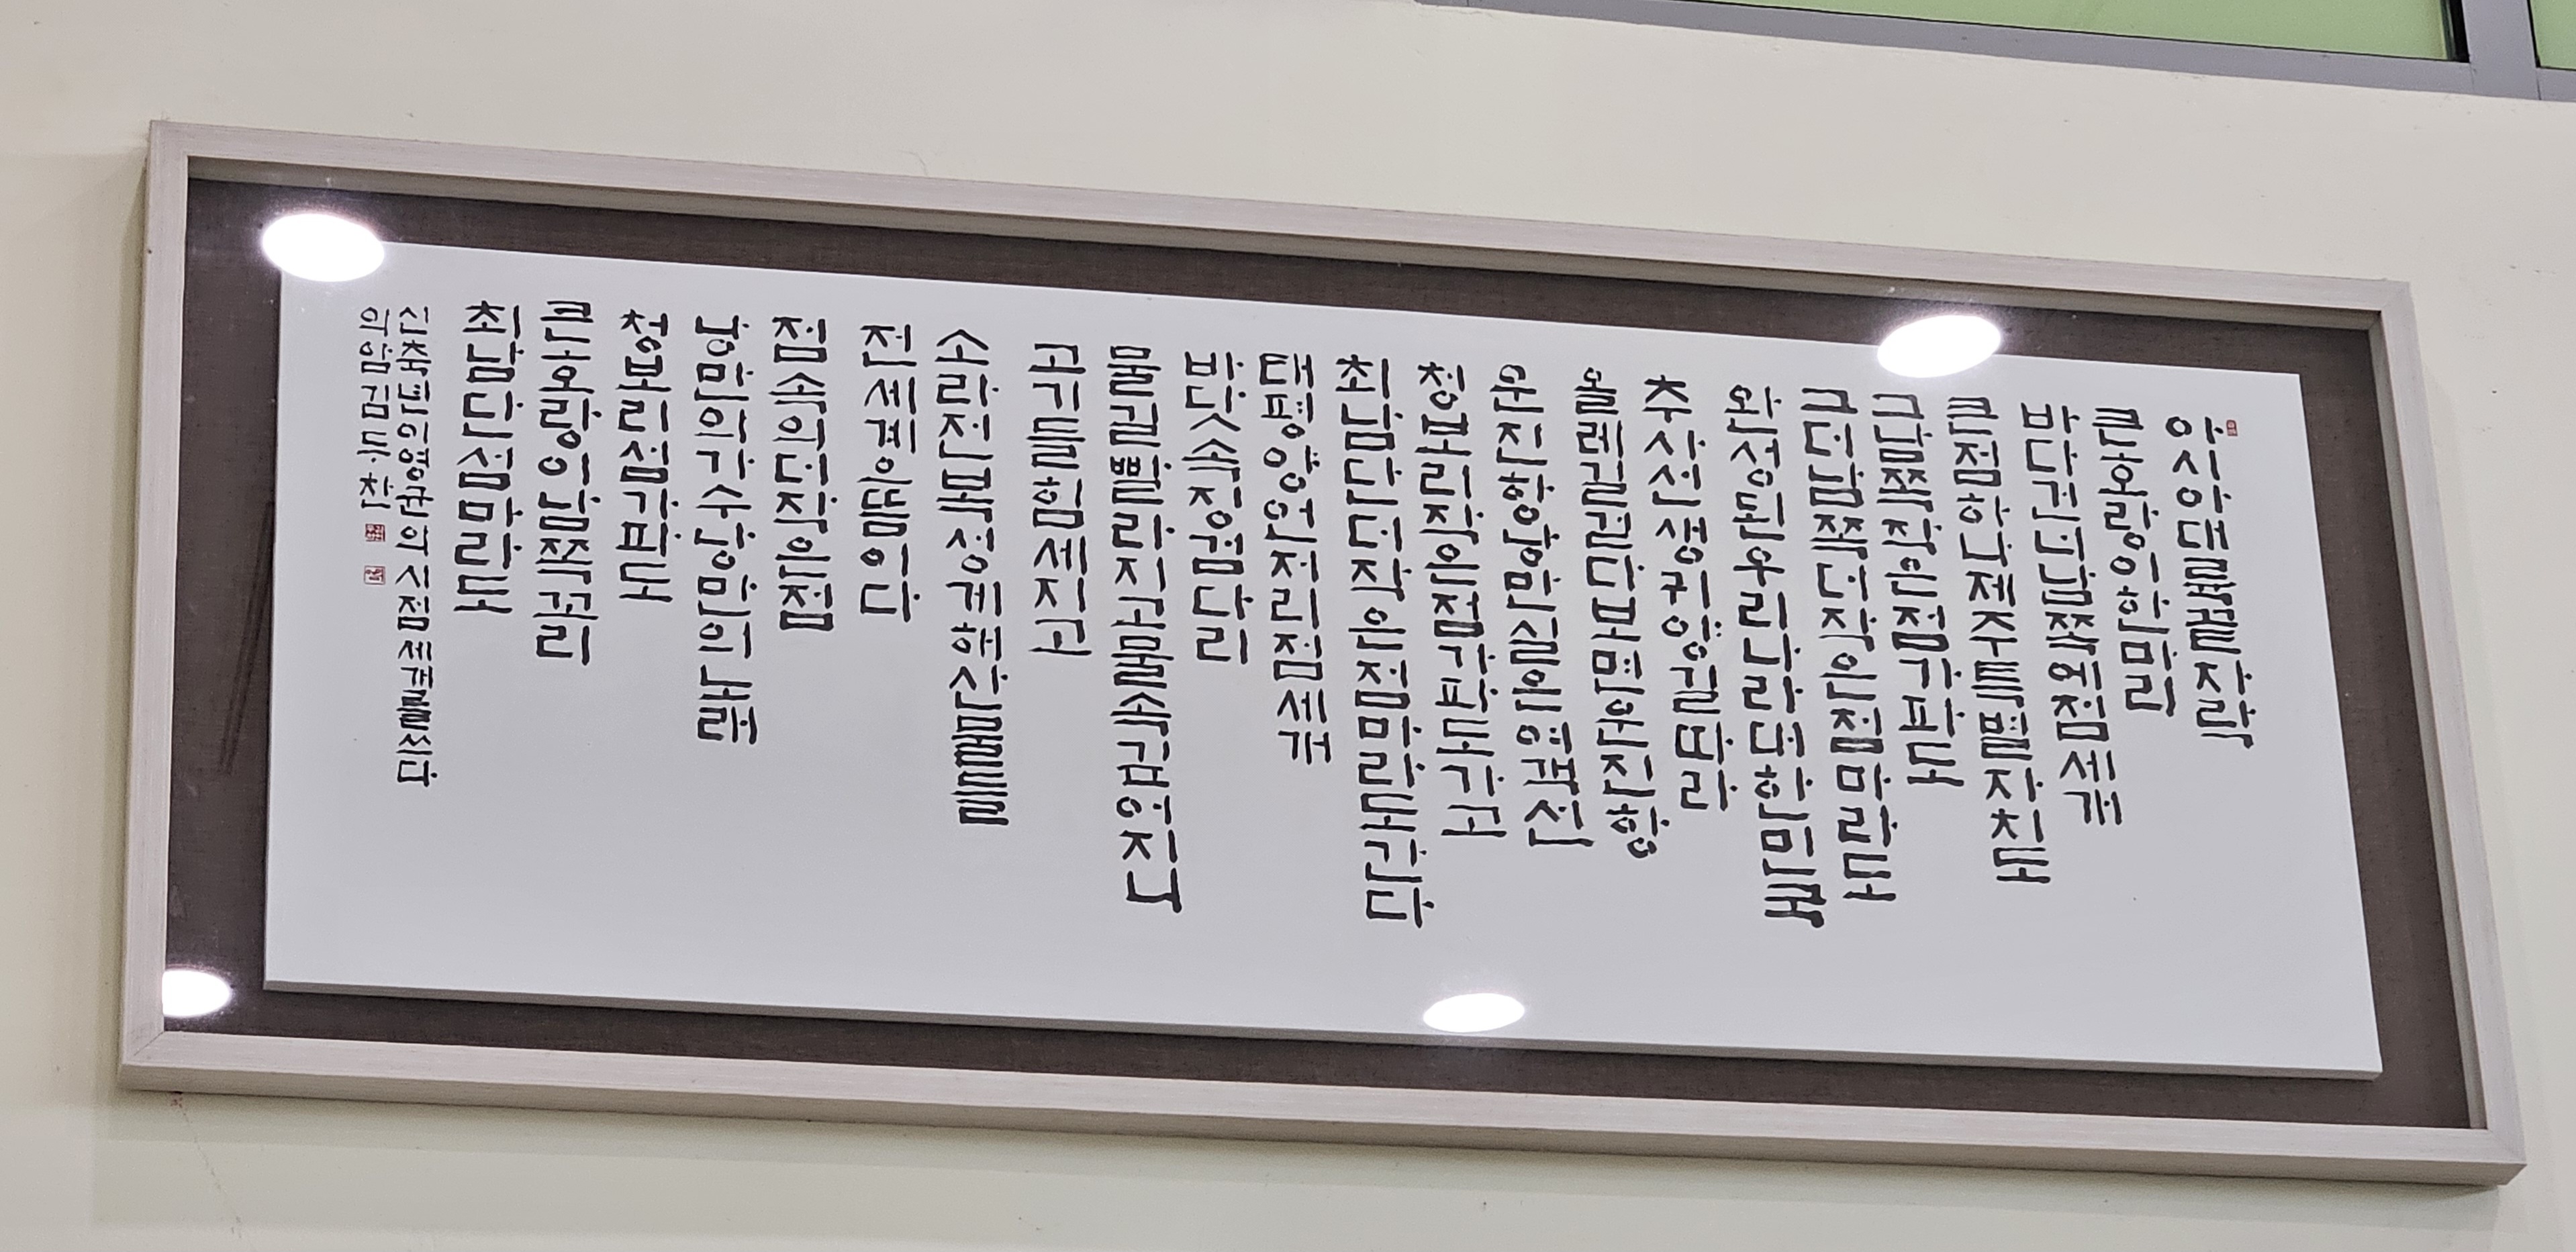 아시아대륙끝자락
큰호랑이한마리
바다건너남쪽에점세개
큰점하나제주특별자치도
그남쪽작은점가파도
그더남쪽더작은점마라도
완성된우리나라대한민국
추사선생귀양길따라
올레길걷다보면운진항
운진항왕만실은여객선
청보리작은점가파도가고
최남단더작은점마라도간다
태평양언저리점세개
바닷속징검다리
물길빨라지고물속깊어지니
고기들힘세지고
소라전복성게해산물들
전세계으뜸이다
점속의더작은점
낭만의가수낭만의노래
청보리섬가파도
큰호랑이남쪽꼬리
최남단섬마라도
신축년이영권의시점세개를쓰다
의암김두찬